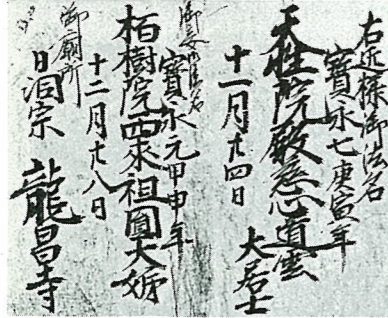 右近様御法名
寳永七庚寅年
天性院殿慈心道雲
大居士
十一月廿四日
御女中法名
寳永元甲申年
栢樹院西来祖圓大姉
十二月廿八日
御廟所
日洞宗 龍昌寺